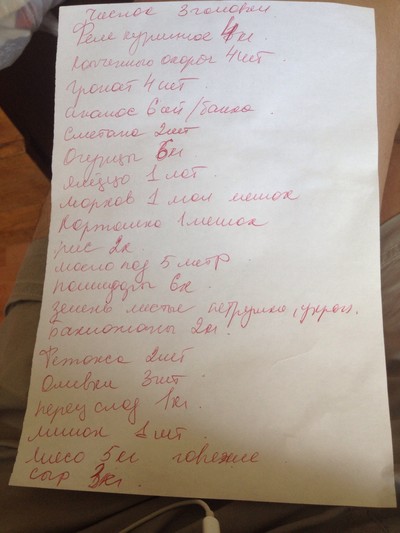 Чеснок 3 головки
Феле куринное 4 кг
Копченного окорог 4 шт
гронат 4 шт
ананас 6 ой/банка
Сметана 2 шт
Огурцы 6 кг
яйцо 1 лот
морков 1 мал мешок
Картошка 1 мешок
рис 2 к
масло под 5 метр
помидоры 6 к
зелень листья петрушка, укроп.
Бакложаны 2 кг
Фетокса 2 шт
Оливки 3 шт
перец слад 1 кг
лимон 1 шт
Мясо 5 кг говяжие
сыр 3 кг